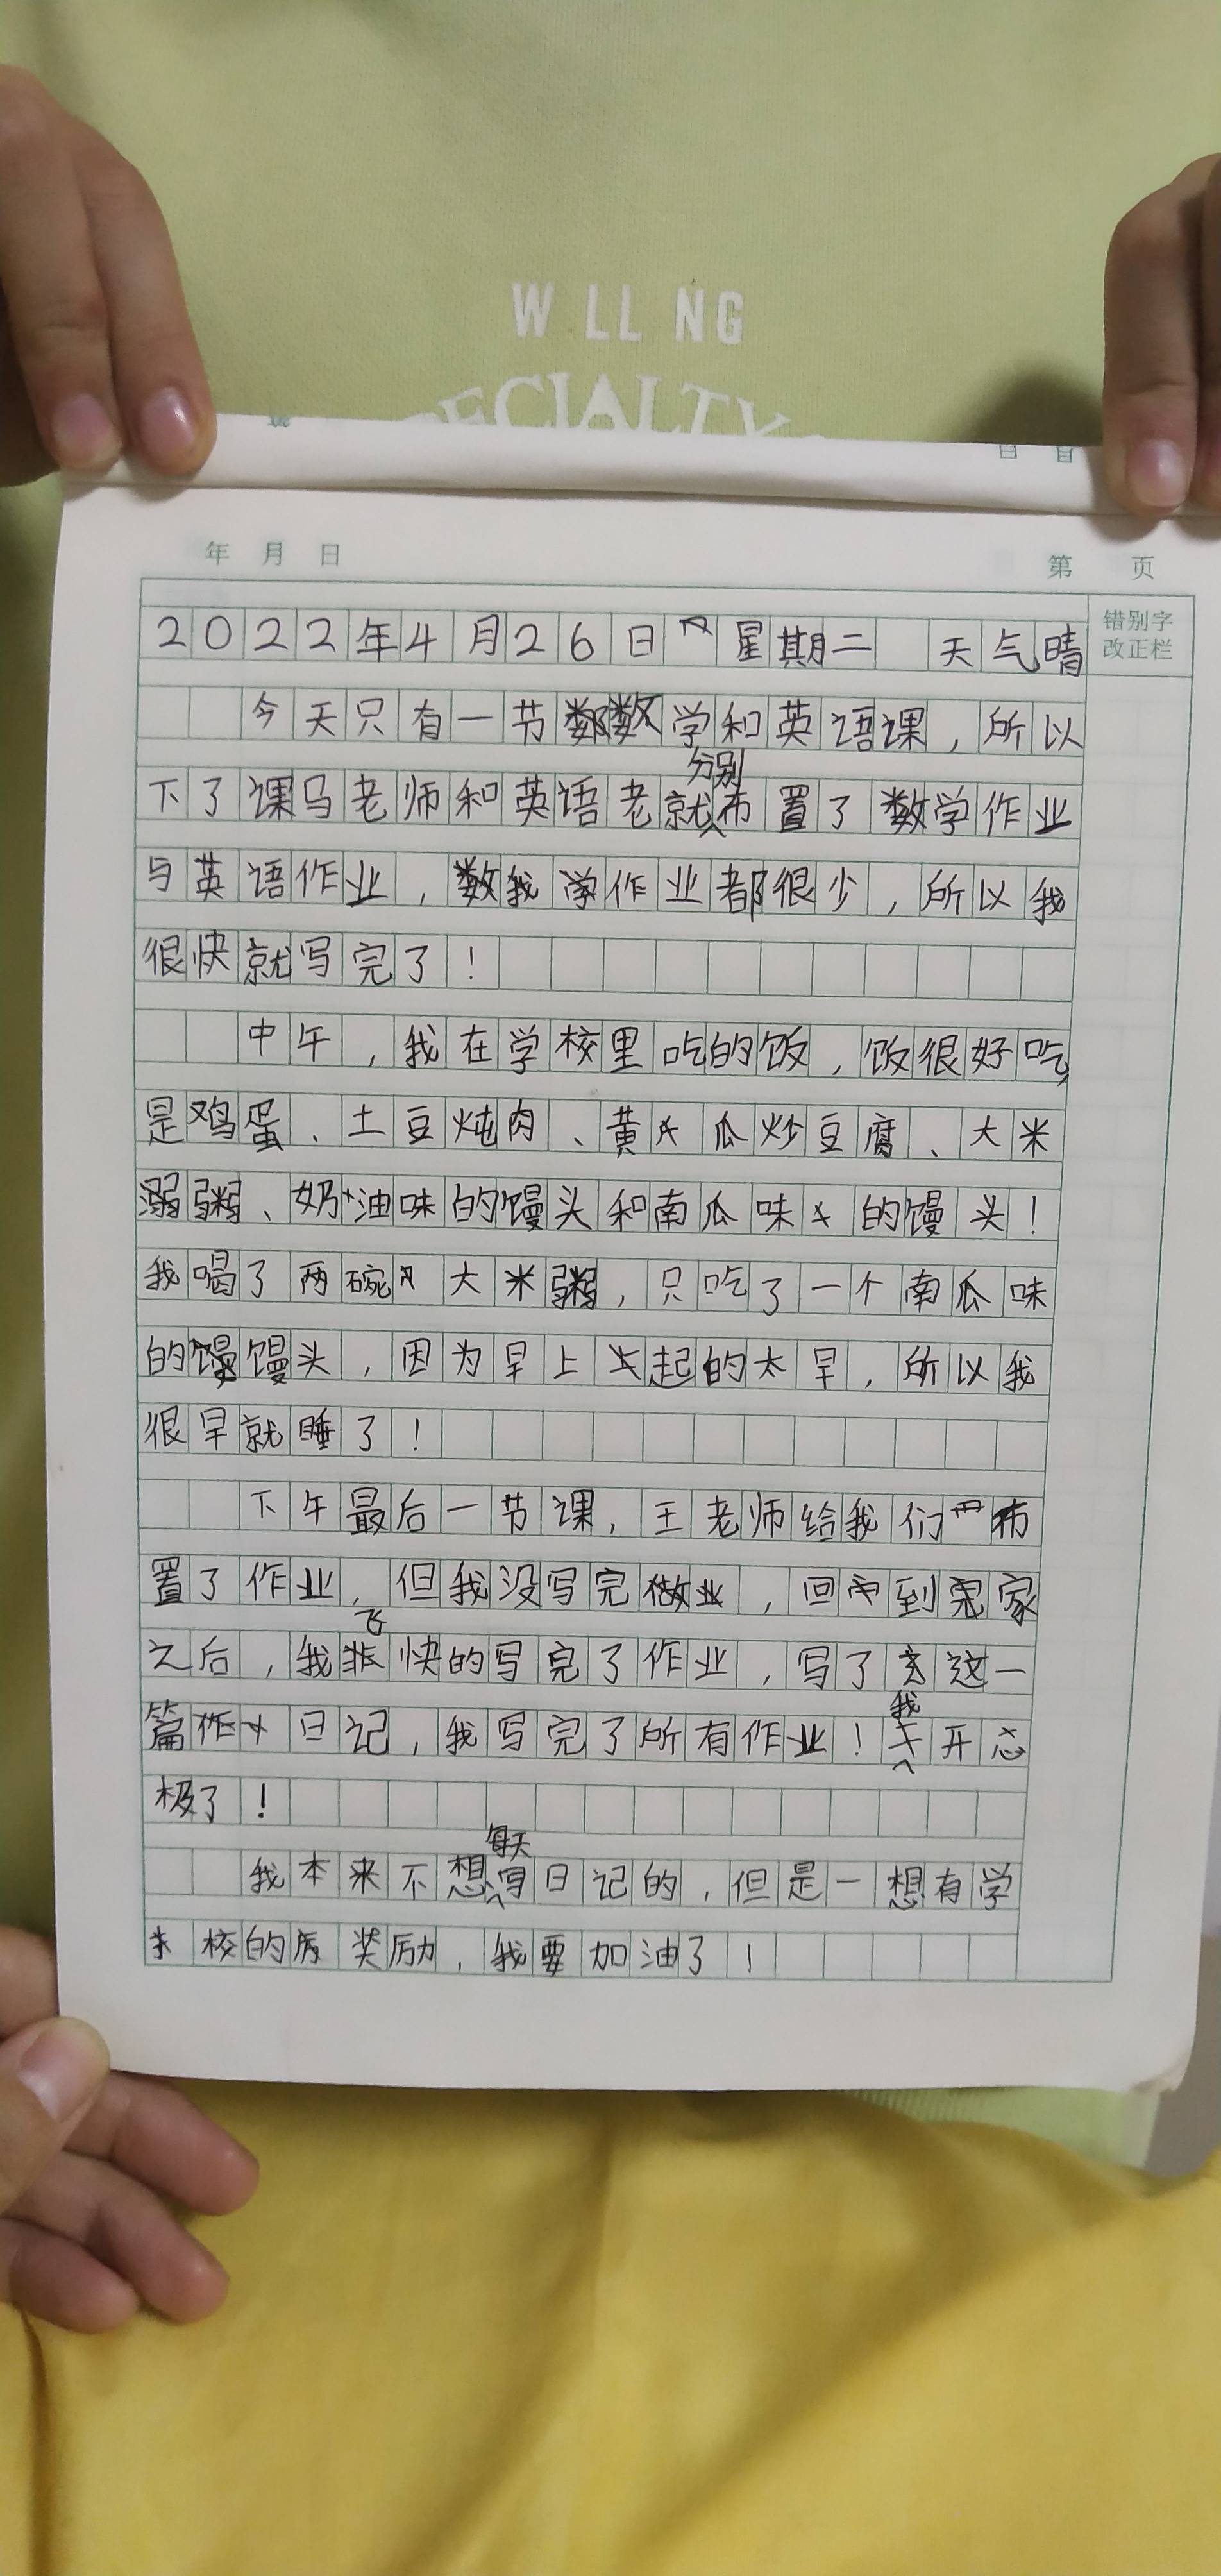 W LL NG
ECIALTY
年 月 日
第 页
错别字
改正栏
2022年4月26日 星期二 天气晴
今天只有一节数学和英语课，所以
下了课马老师和英语老就分别布置了数学作业
与英语作业，数学作业都很少，所以我
很快就写完了！
中午，我在学校里吃的饭，饭很好吃，
是鸡蛋、土豆炖肉、黄瓜炒豆腐、大米
粥、奶油味的馒头和南瓜味的馒头！
我喝了两碗大米粥，只吃了一个南瓜味
的馒头，因为早上起的太早，所以我
很早就睡了！
下午最后一节课，王老师给我们布
置了作业，但我没写完，回到家
之后，我飞快的写完了作业，写了这一
篇日记，我写完了所有作业！我开心
极了！
我本来不想每天写日记的，但是一想有学
校的奖励，我要加油了！